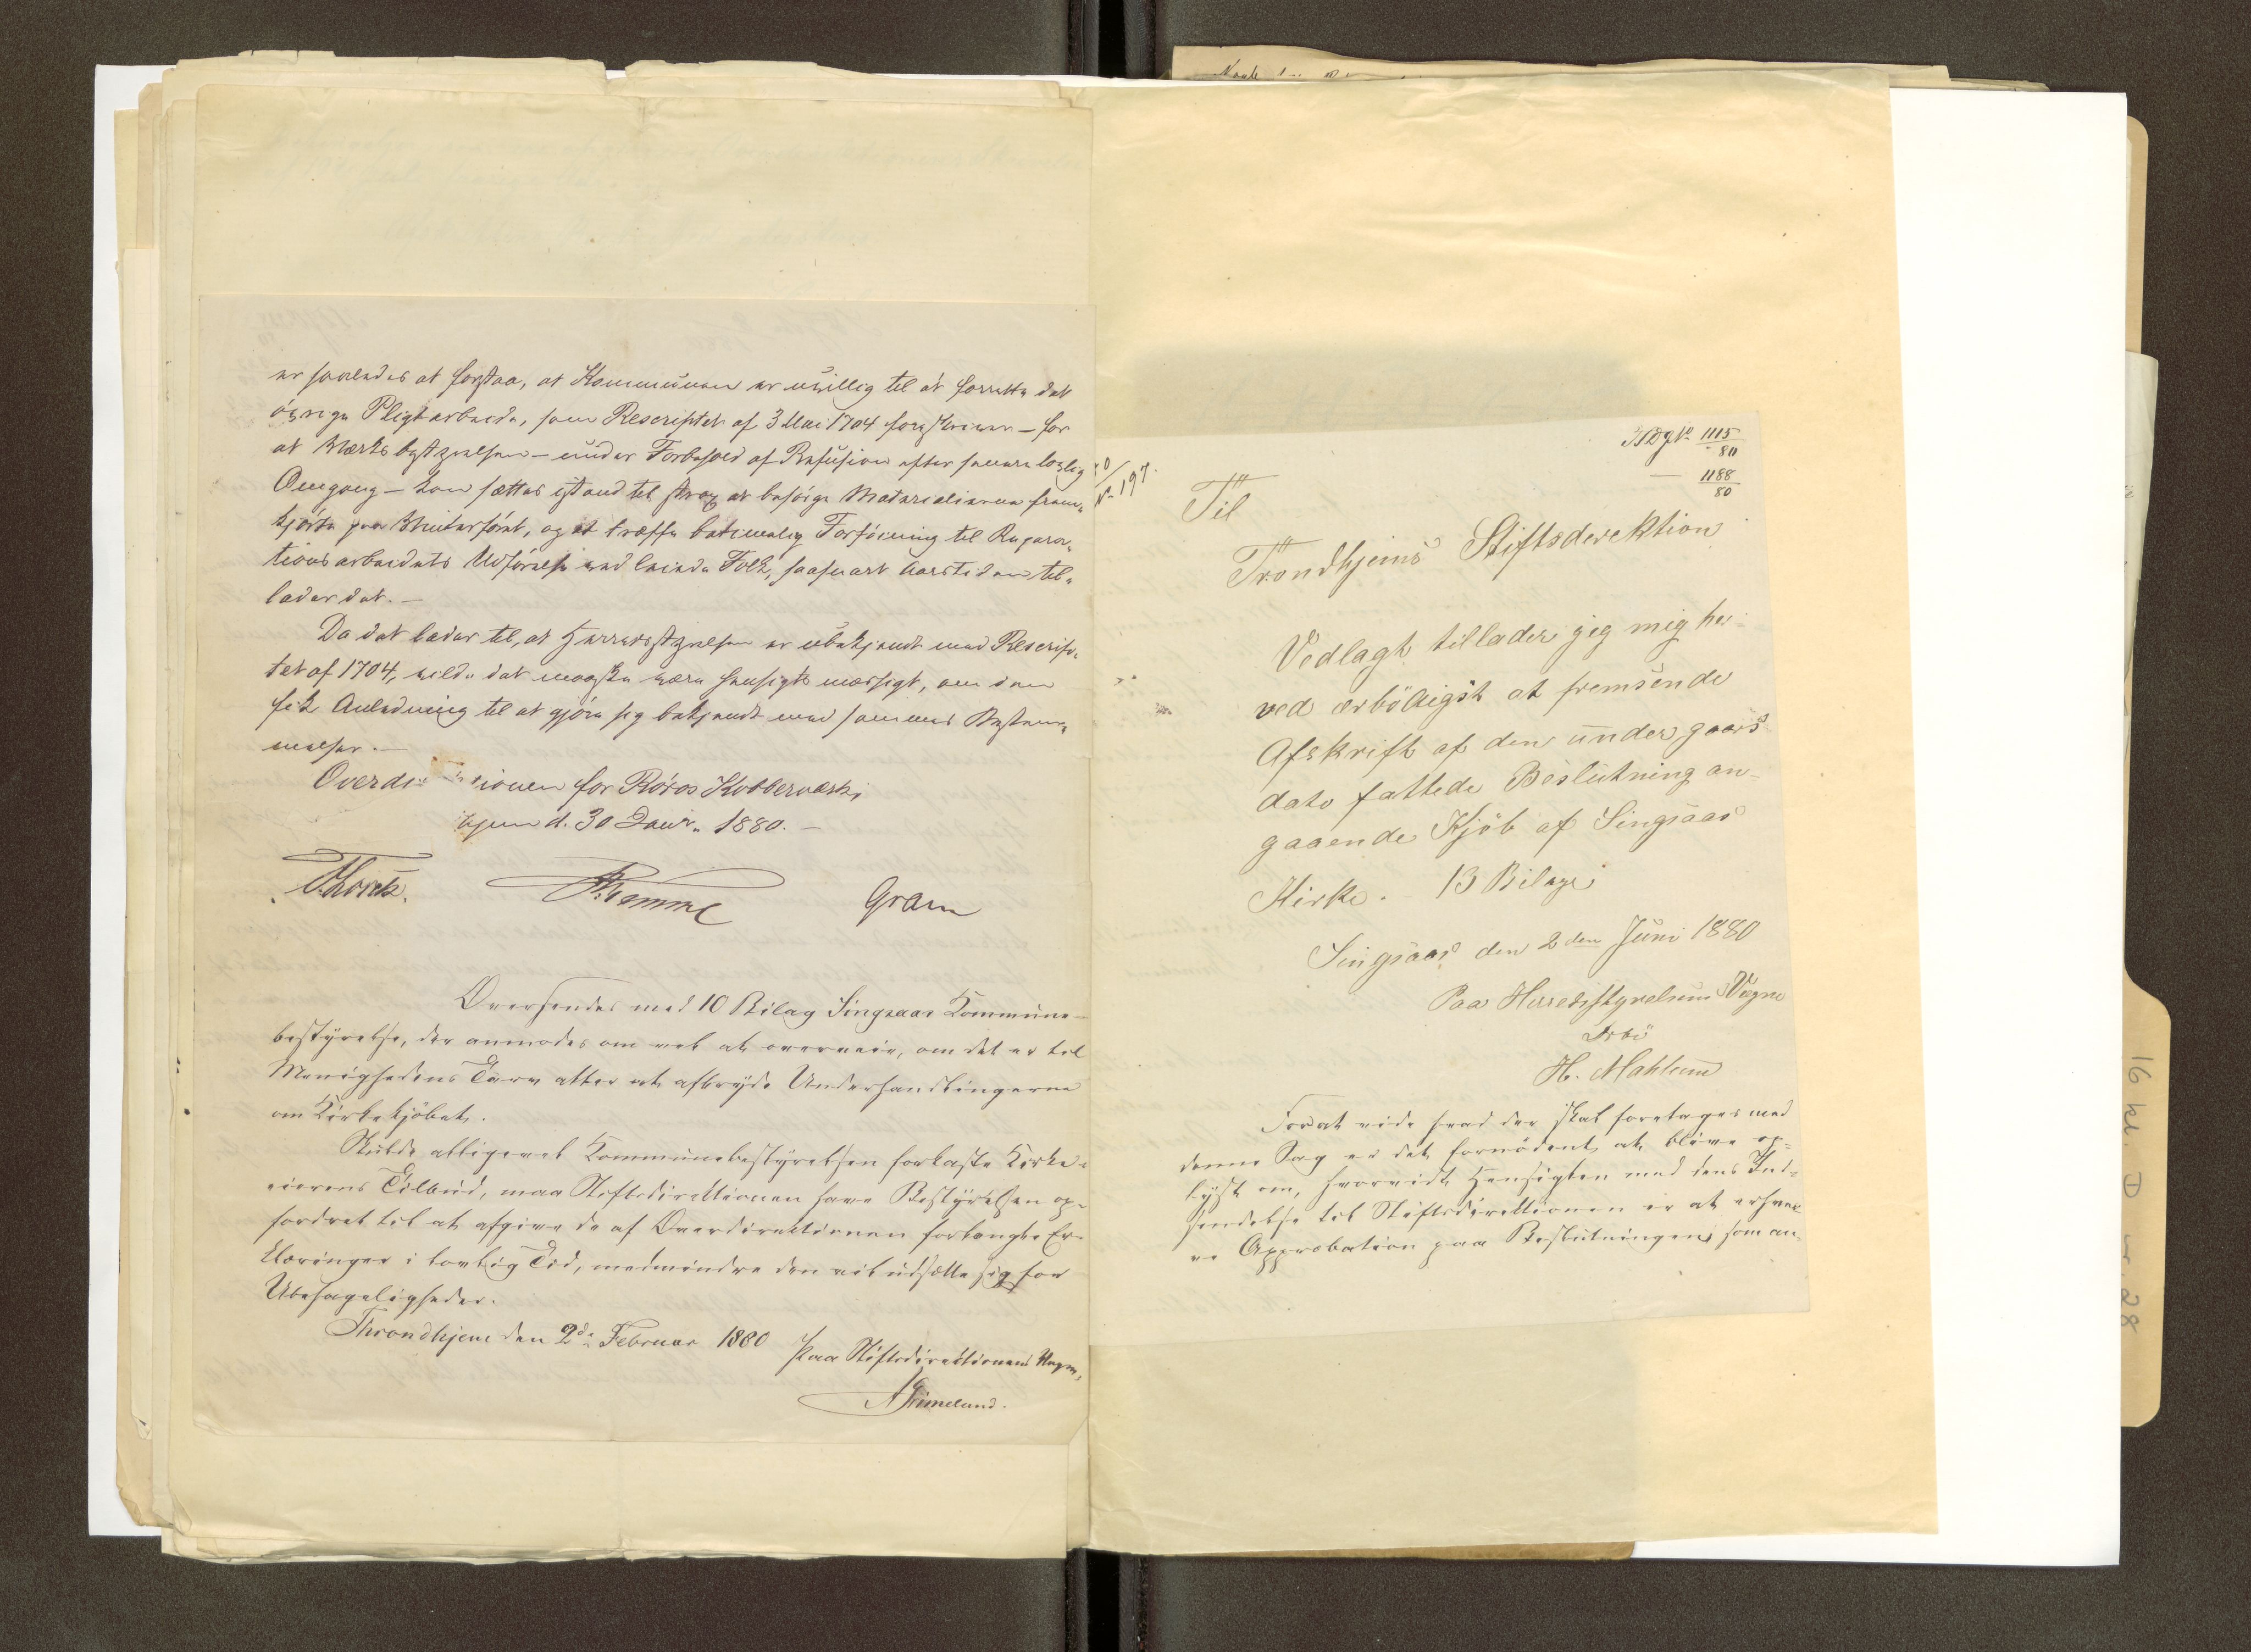 er saaledes at forstaa, at Kommunen er uvillig til at forrette det
øvrige Pligtarbeide, som Rescriptet af 3 Mai 1704 foreskriver – for
at Værksbestyrelsen – under Forbehold af Refusion efter senere lovlig
Omgang – kan sættes istand til strax at besørge Materialierne frem-
kjørte paa Vinterføret, og at træffe betimelig Forføining til Repara-
tionsarbeidets Udførelse ved leiede Folk, saasnart Aarstiden til-
lader det. –
Da det lader til, at Herredsstyrelsen er ubekjendt med Rescrip-
tet af 1704, vilde det maaske være hensigtsmæssigt, om den
fik Anledning til at gjøre sig bekjendt med sammes Bestem-
melser. –
Overdi tionen for Röros Kobberværk,
hjem d. 30 Janr. 1880. –
Gram
Oversendes med 10 Bilag Singsaas Kommune-
bestyrelse, der anmodes om vel at overveie, om det er til
Menighedens Tarv atter at afbryde Underhandlingerne
om Kirkekjøbet.
Skulde alligevel Kommunebestyrelsen forkaste Kirke-
eierens Tilbud, maa Stiftsdirektionen have Bestyrelsen op-
fordret til at afgive de af Overdirektionen forlangte Er-
klæringer i lovlig Tid, medmindre den vil udsætte sig for
Ubehageligheder.
Throndhjem den 2de Februar 1880
Paa Stiftsdirektionens Vegne,
Grimelund.
No 197.
JNo 1115/80
— 1188/80
Til
Trondhjems Stiftsderektion
Vedlagt tillader jeg mig her-
ved ærbödigst at fremsende
Afskrift af den under gaars
dato fattede Beslutning an-
gaaende Kjöb af Singsaas
Kirke. 13 Bilage
Singsaas den 2den Juni 1880
Paa Herredsstyrelsens Vegne
Ærbö
H. Mahlum
For at vide hvad der skal foretages med
denne Sag er det fornødent at blive op-
lyst om, hvorvidt Hensigten med dens Ind-
sendelse til Stiftsdirektionen er at erhver-
ve Approbation paa Beslutningen, som an-
16 kl. D nr. 28